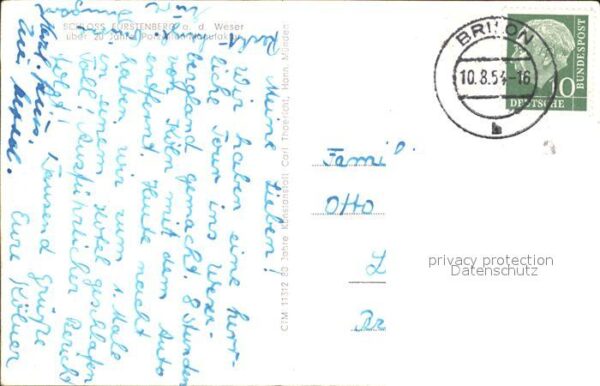 SCHLOSS FÜRSTENBERG a. d. Weser
über 20 Jahre Porzellanmanufaktur
Meine Lieben!
Wir haben eine herr-
liche Tour ins Weser-
bergland gemacht. 8 Stunden
von Köln mit dem Auto
entfernt. Heute nacht
haben wir zum 1. Male
in einem Hotel geschlafen
Toll! Ausführlicher Bericht
folgt!
Tausend Grüße
Eure Kölner
CTM 11312 80 Jahre Kunstanstalt Carl Thoericht, Hann. Münden
BRILON
10.8.54-16
b
10
DEUTSCHE
BUNDESPOST
Famil
Otto
L
privacy protection
Datenschutz